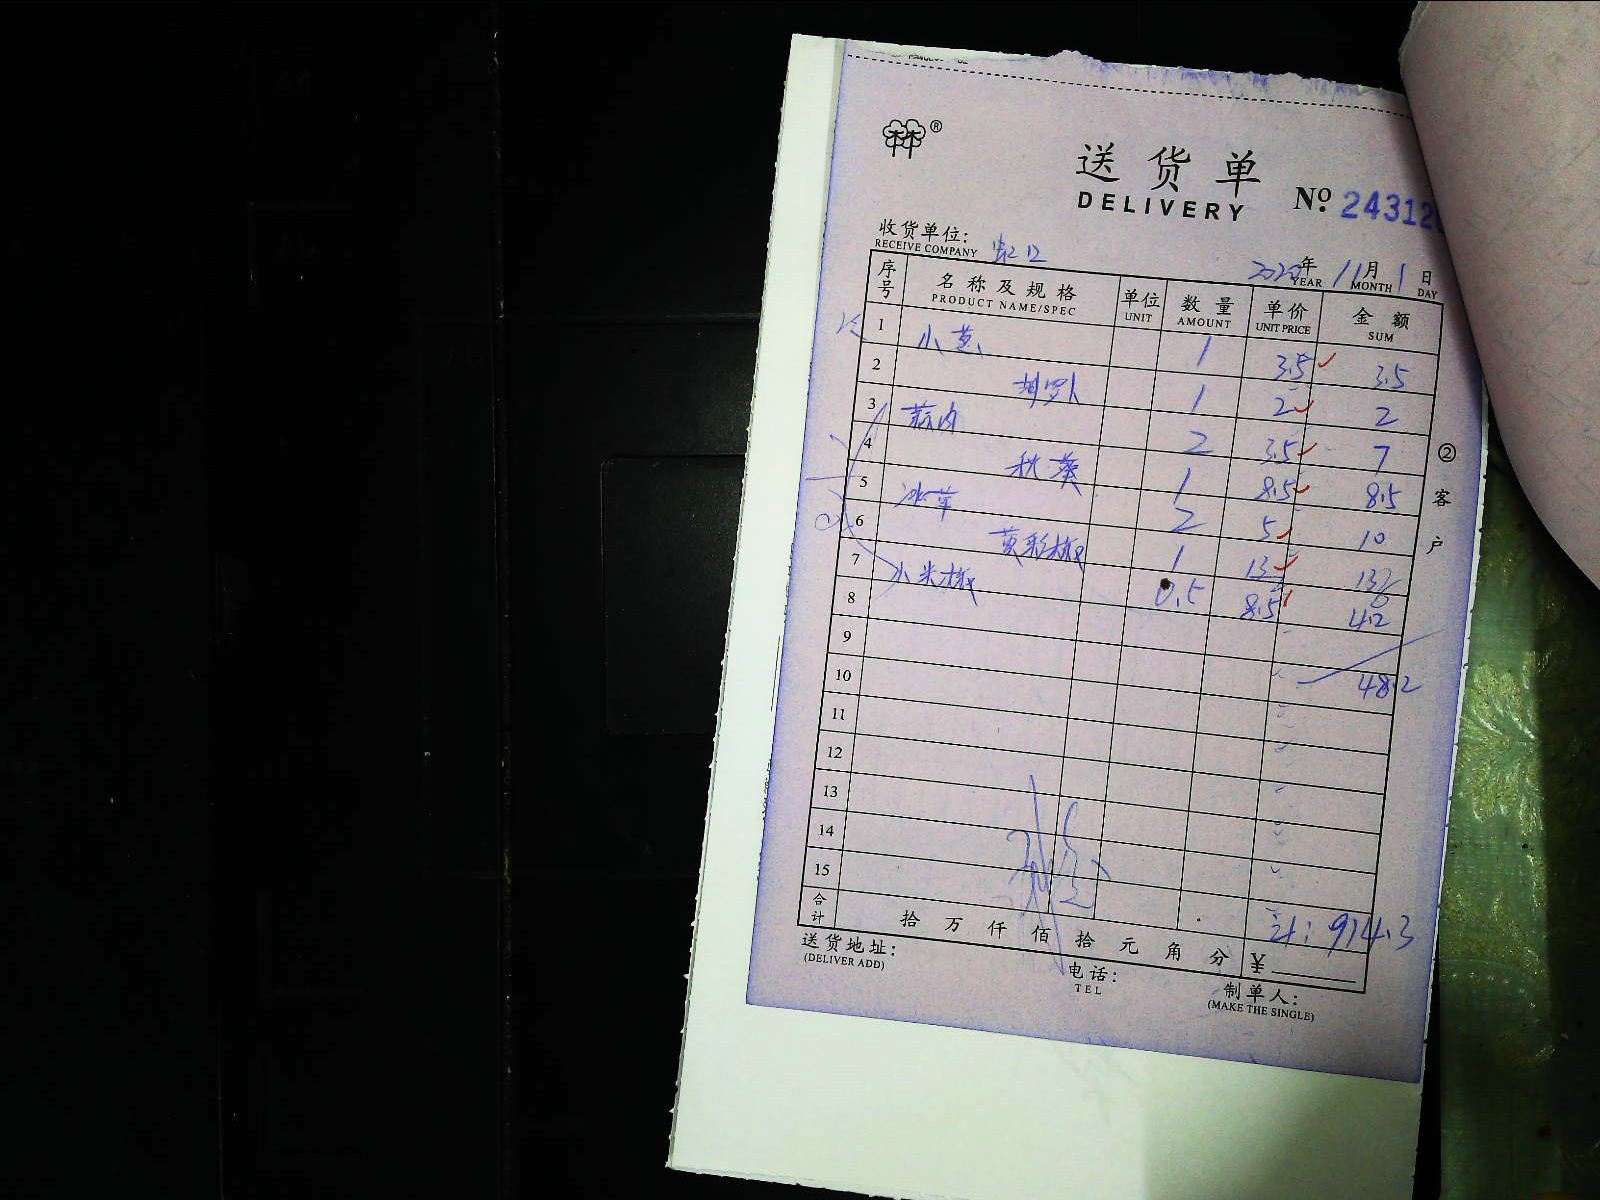 ®
送货单
DELIVERY
No. 24312
收货单位: 虹口
RECEIVE COMPANY
年 11月 1日
YEAR MONTH DAY
序号 名称及规格 单位 数量 单价 金额
PRODUCT NAME/SPEC UNIT AMOUNT UNIT PRICE SUM
1 小黄 1 3.5 3.5
2 胡罗卜 1 2 2
3 蒜肉 2 3.5 7
4 秋葵 1 8.5 8.5
5 冰草 2 5 10
6 黄彩椒 1 13 13
7 小米椒 0.5 8.5 4.2
8
9
48.2
10
11
12
13
14
15
计: 914.3
合计 拾 万 仟 佰 拾 元 角 分 ¥
送货地址:
(DELIVER ADD)
电话:
TEL
制单人:
(MAKE THE SINGLE)
②客户